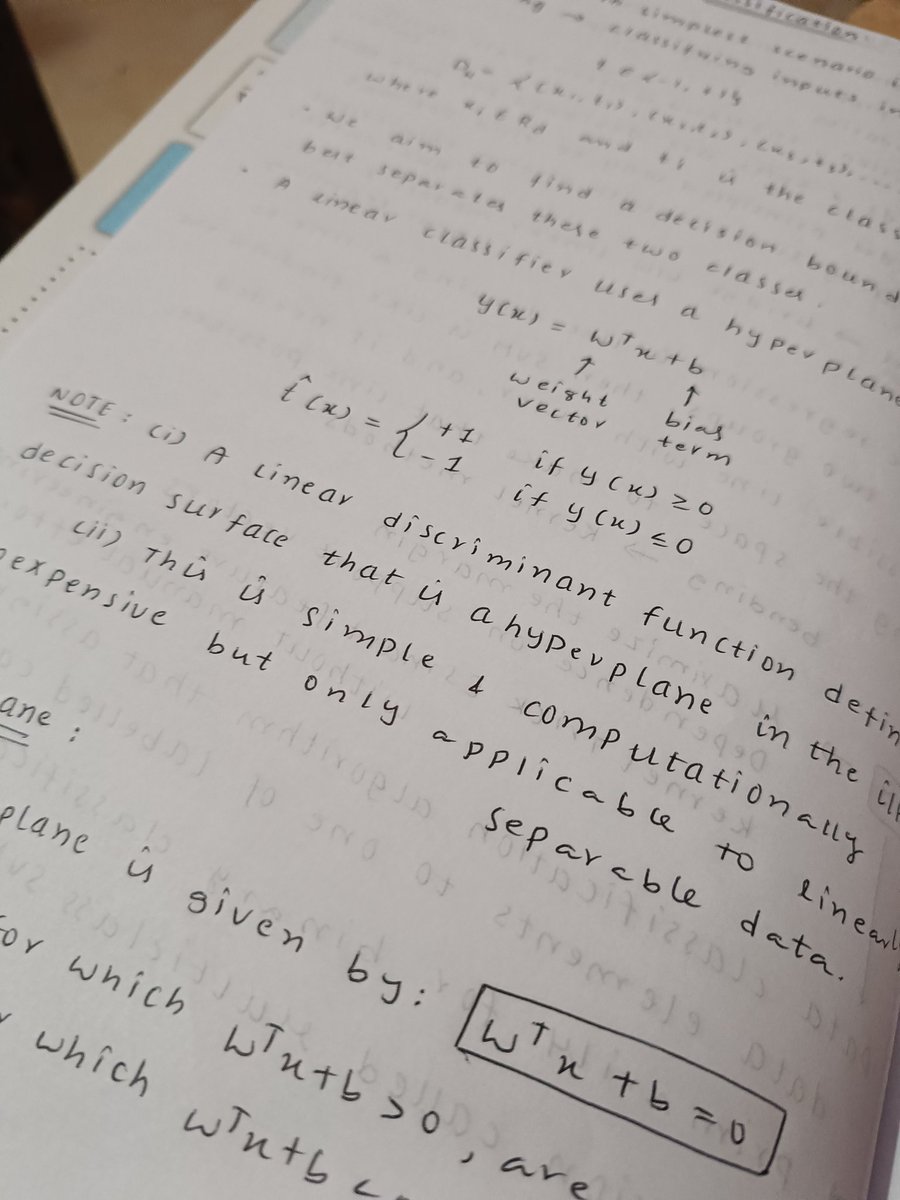 simplest scenario
classifying inputs
where and is the class
We aim to find a decision bound
best separates these two classes.
A linear classifier uses a hyperplane
y(x) = wᵀx + b
↑ ↑
weight bias
vector term
t̂(x) = { +1 if y(x) ≥ 0
-1 if y(x) ≤ 0
NOTE: (i) A linear discriminant function defin
decision surface that is a hyperplane in the
(ii) This is simple & computationally
expensive but only applicable to linearl
separable data.
ane:
plane is given by: wᵀx + b = 0
for which wᵀx+b > 0, are
which wᵀx+b <